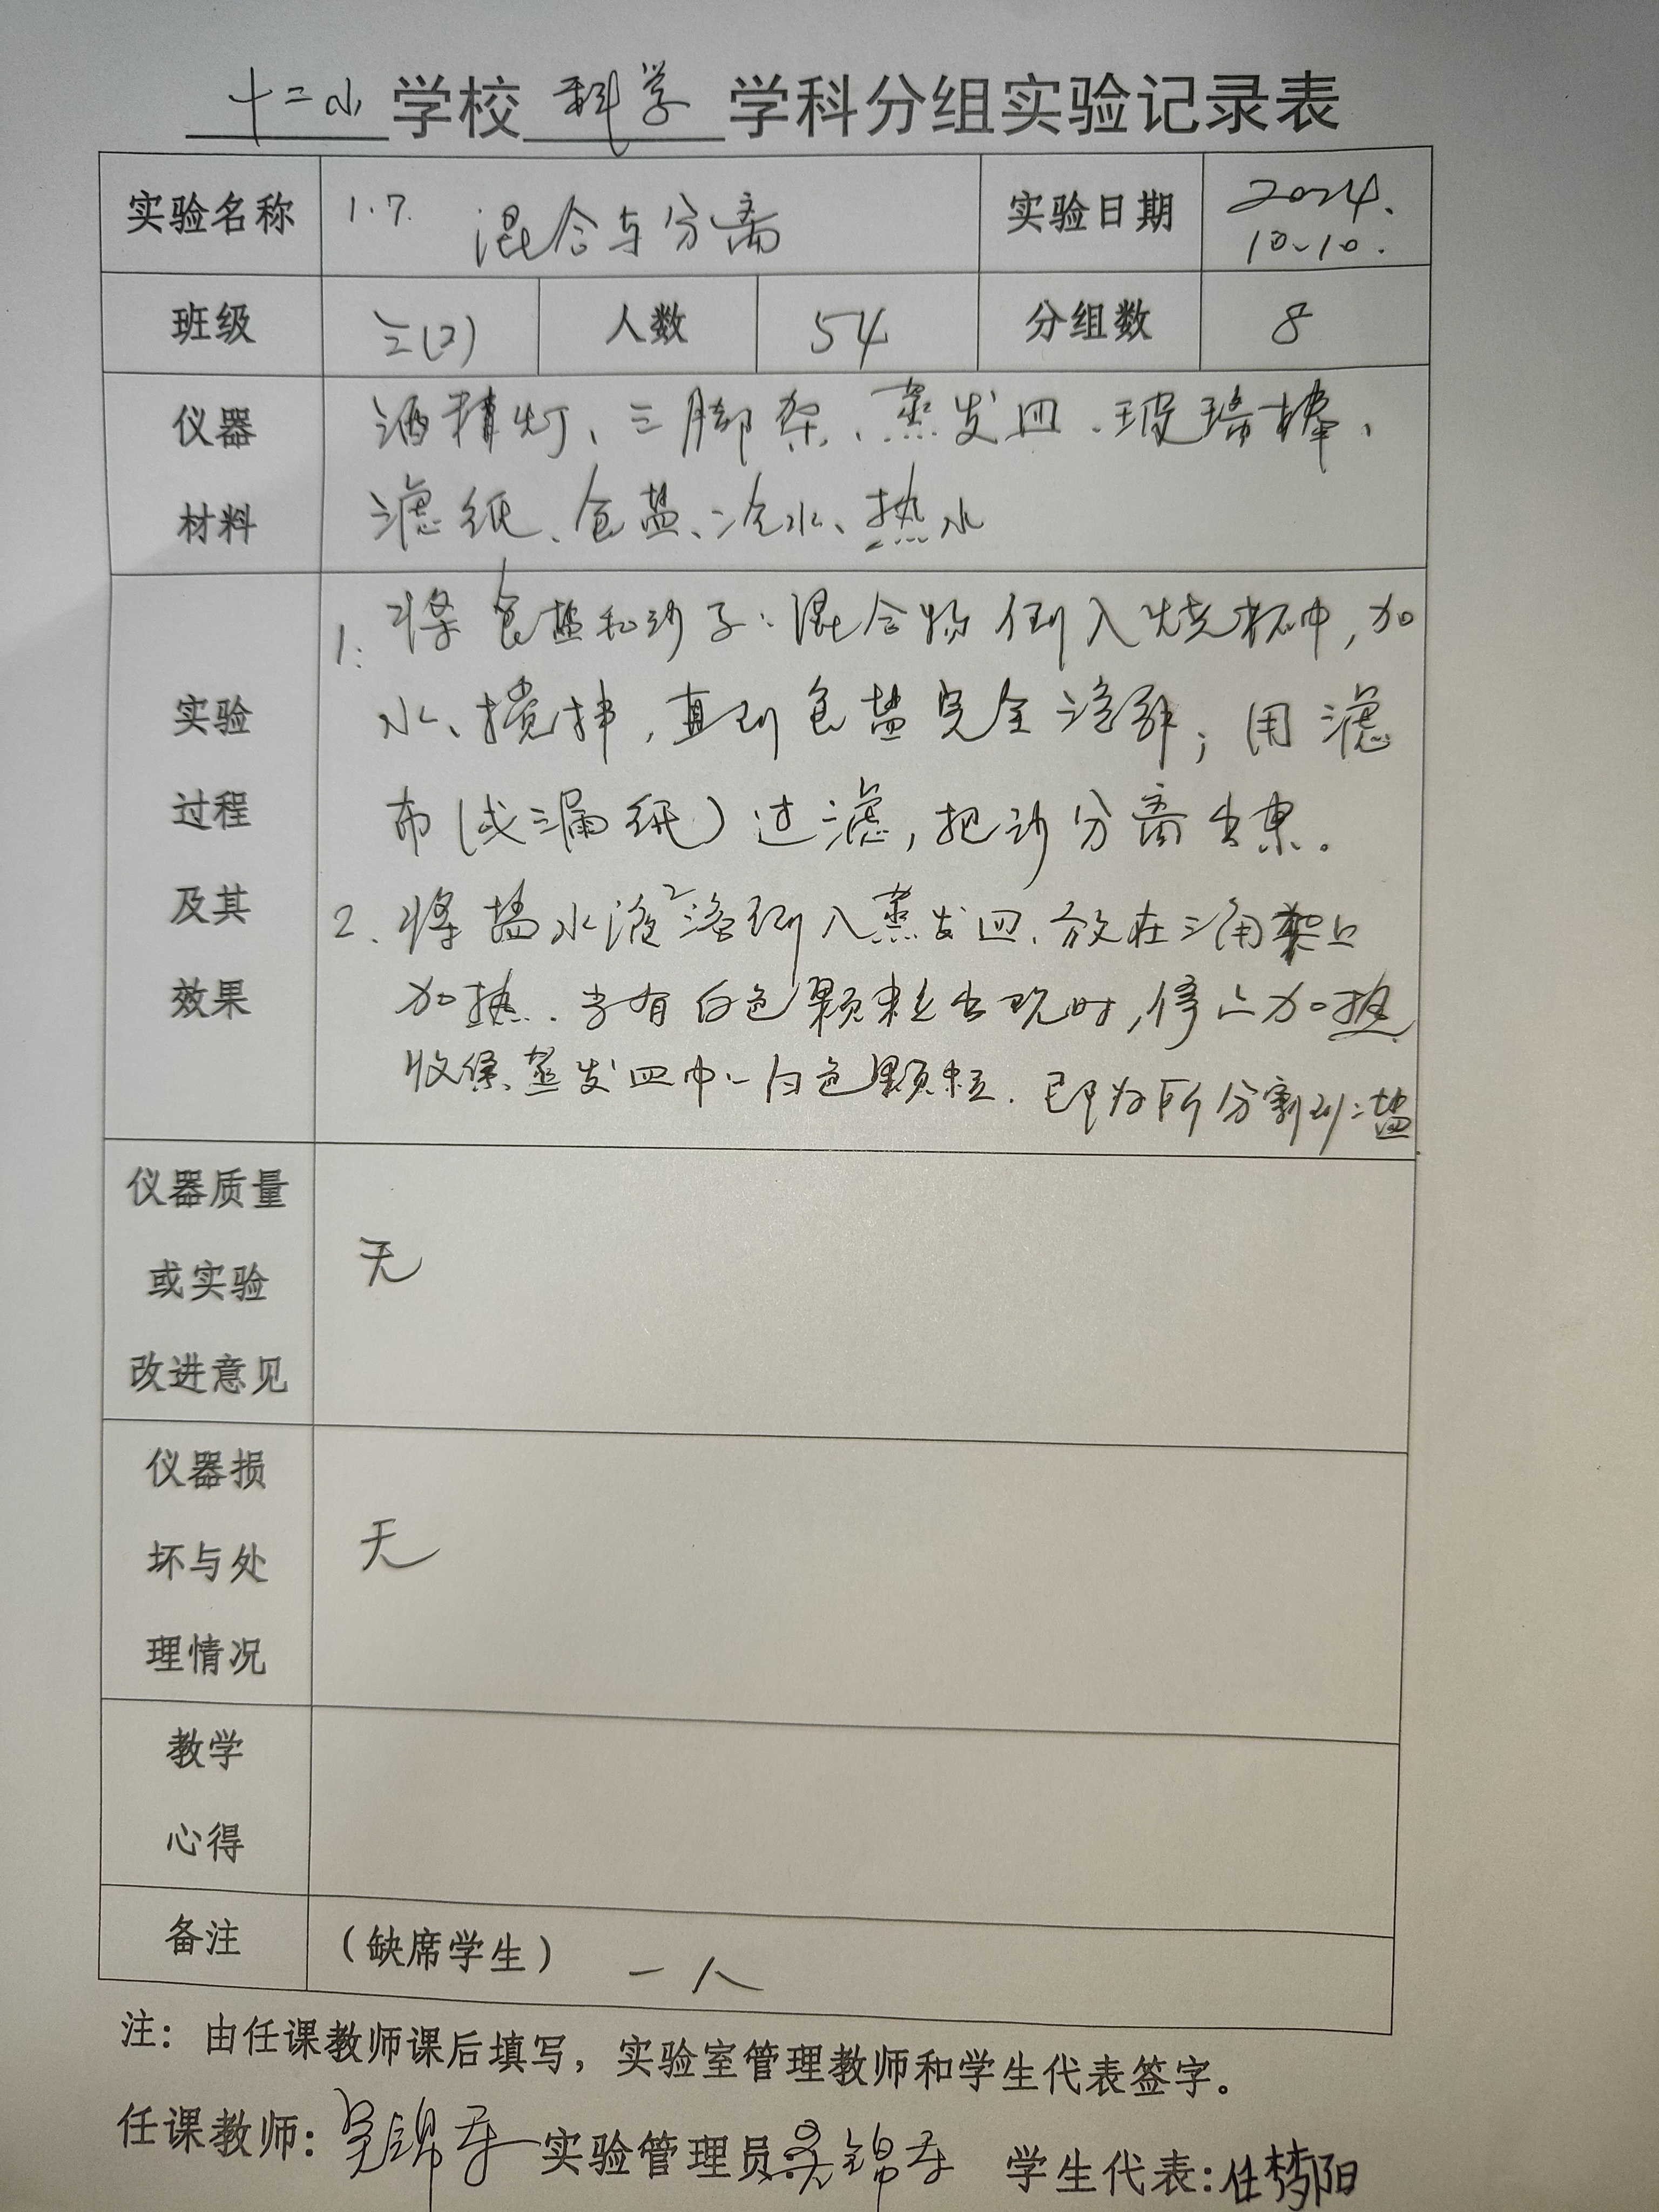 十二小学校科学学科分组实验记录表
实验名称 1.7. 混合与分离 实验日期 2024.10.10.
班级 三(2) 人数 54 分组数 8
仪器 酒精灯、三脚架、蒸发皿、玻璃棒、
材料 滤纸、食盐、冷水、热水
1. 将食盐和沙子混合物倒入烧杯中,加
实验 水、搅拌,直到食盐完全溶解;用滤
过程 布(或漏纸)过滤,把沙分离出来。
及其 2. 将盐水液倒入蒸发皿、放在三角架上
效果 加热.当有白色颗粒出现时,停止加热
收集蒸发皿中白色颗粒.即为所分离到盐
仪器质量
或实验 无
改进意见
仪器损
坏与处 无
理情况
教学
心得
备注 (缺席学生) 一人
注:由任课教师课后填写,实验室管理教师和学生代表签字。
任课教师: 实验管理员: 学生代表:任梦阳